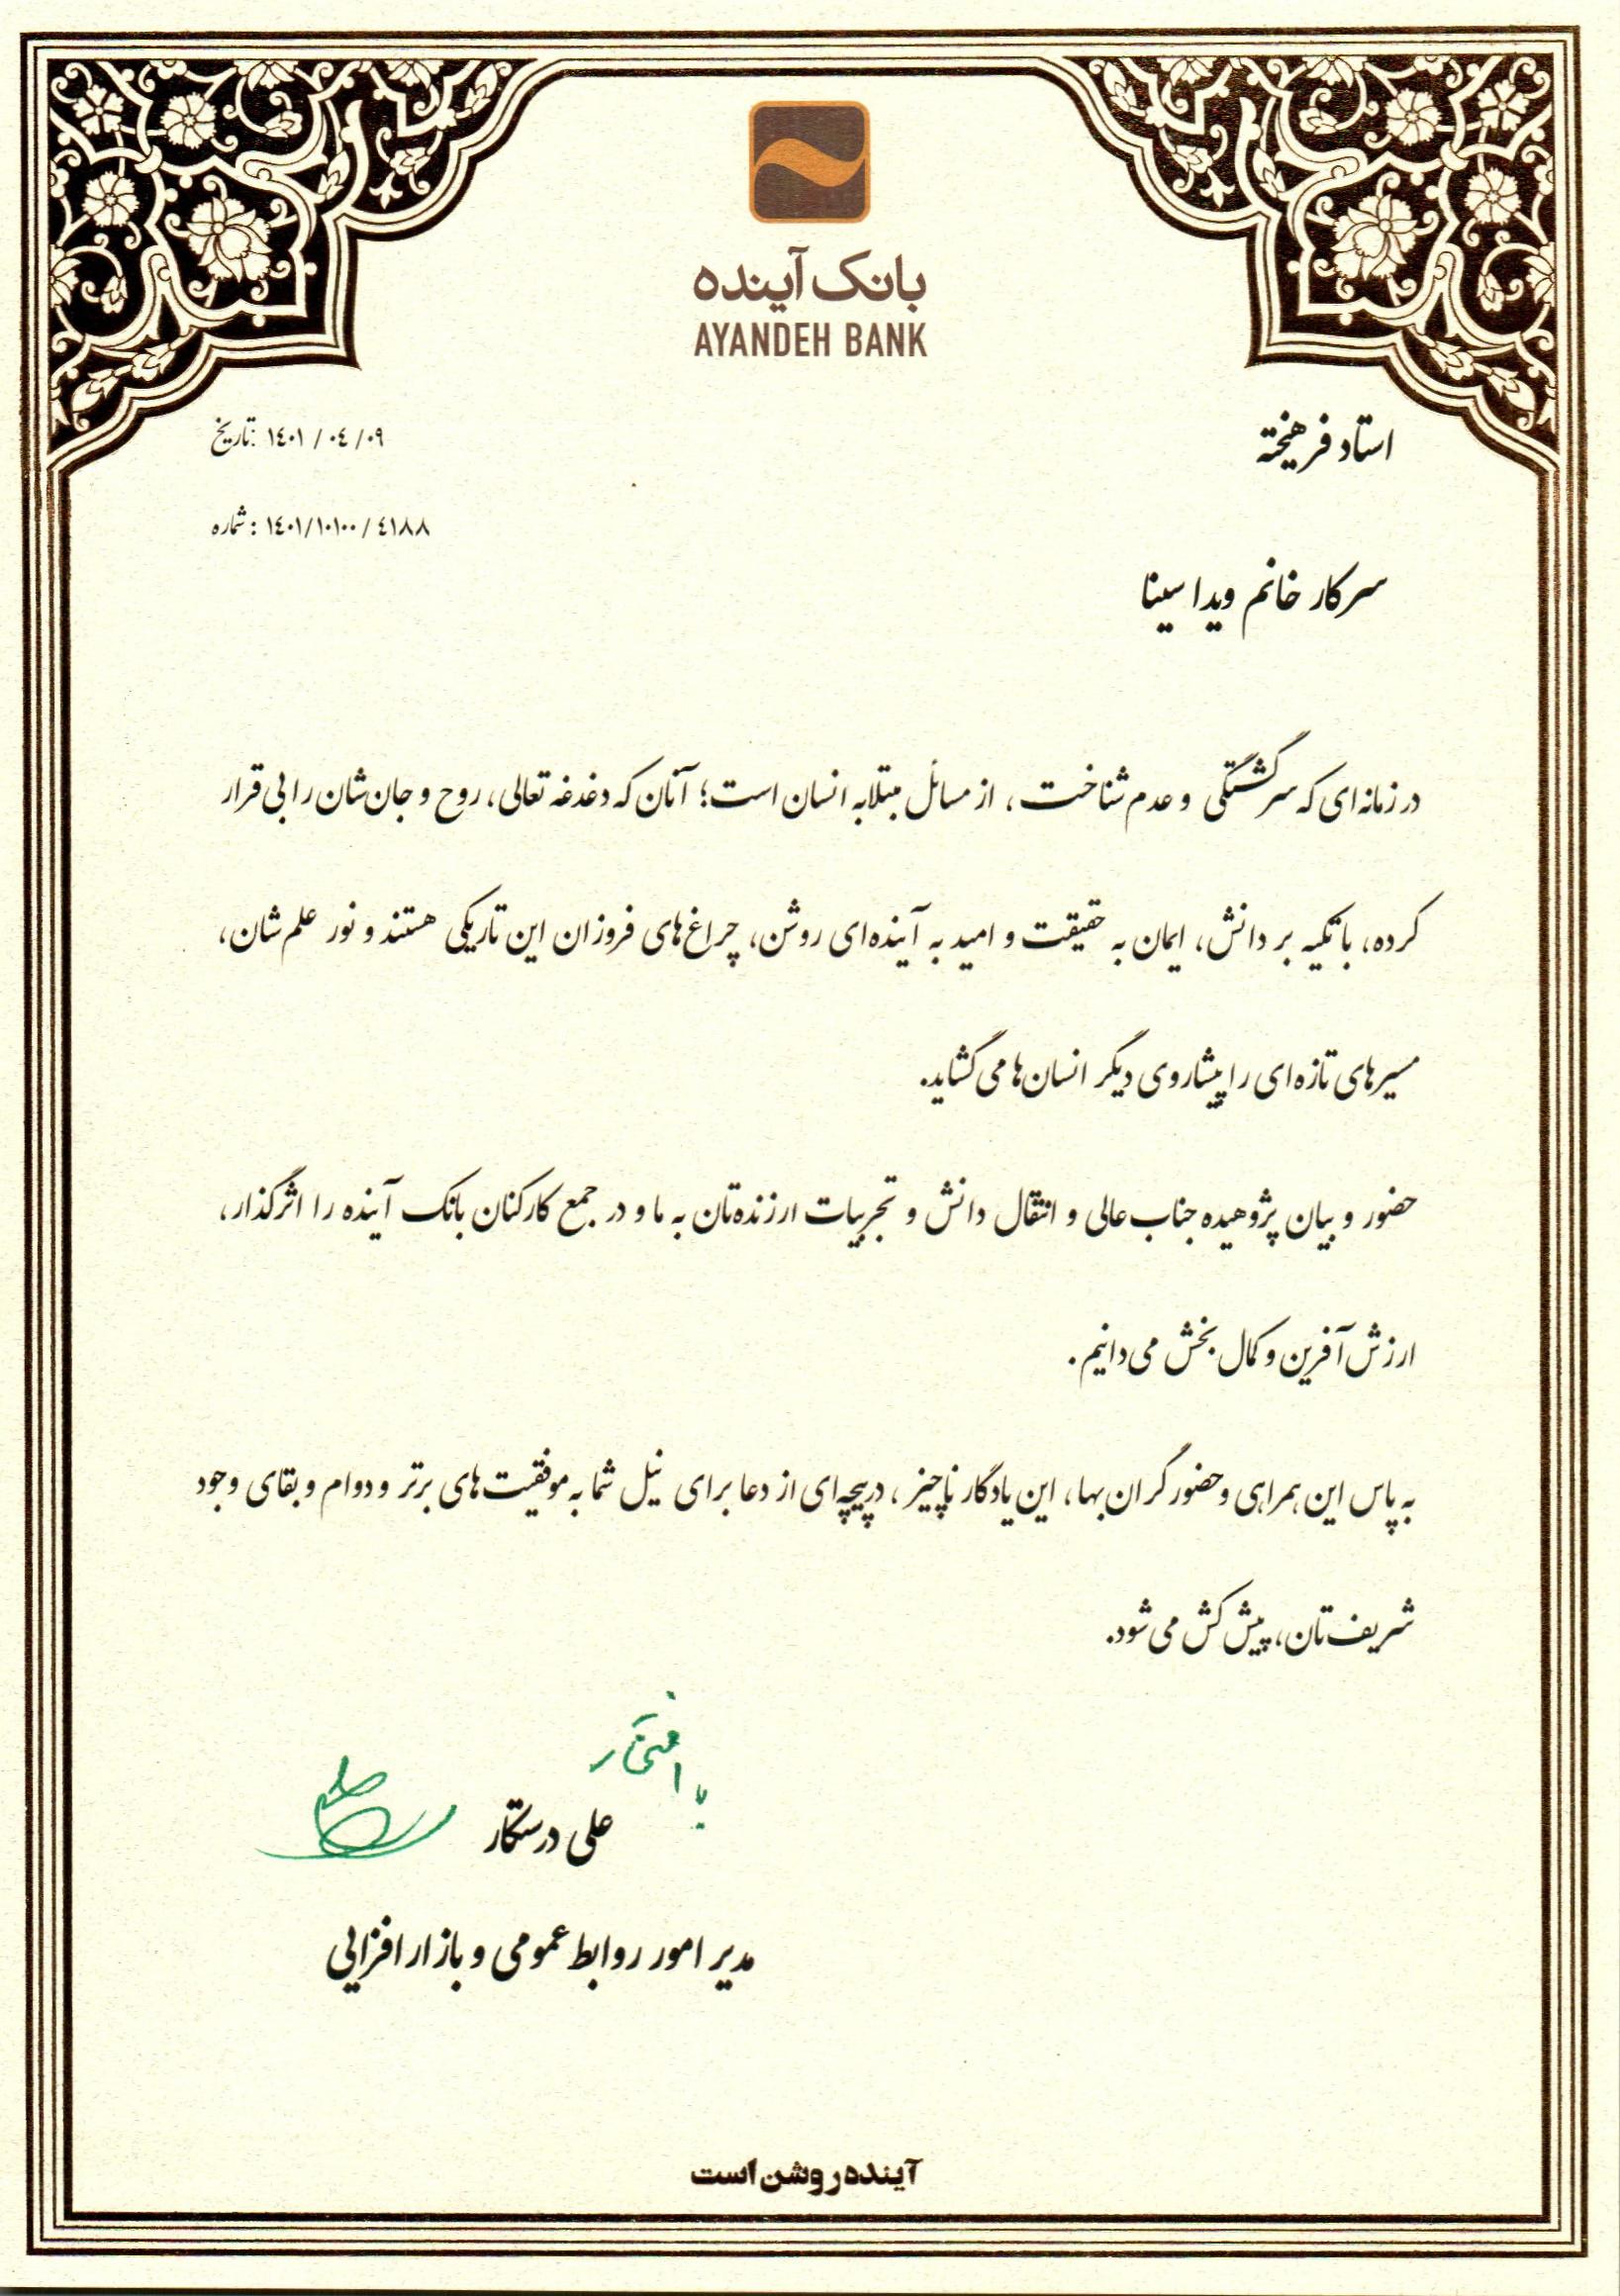 بانک آینده
AYANDEH BANK
تاریخ: ۱٤۰۱ / ۰٤ / ۰۹
شماره : ۱٤۰۱/۱۰۱۰۰ / ٤۱۸۸
استاد فرهیخته
سرکار خانم ویدا سینا
در زمانه‌ای که سرگشتگی و عدم شناخت، از مسائل مبتلابه انسان است؛ آنان که دغدغه تعالی، روح و جان‌شان را بی‌قرار
کرده، با تکیه بر دانش، ایمان به حقیقت و امید به آینده‌ای روشن، چراغ‌های فروزان این تاریکی هستند و نور علم‌شان،
مسیرهای تازه‌ای را پیشاروی دیگر انسان‌ها می‌گشاید.
حضور و بیان پژوهیده جناب‌عالی و انتقال دانش و تجربیات ارزنده‌تان به ما و در جمع کارکنان بانک آینده را اثرگذار،
ارزش‌آفرین و کمال‌بخش می‌دانیم.
به پاس این همراهی و حضور گران‌بها، این یادگار ناچیز، دریچه‌ای از دعا برای نیل شما به موفقیت‌های برتر و دوام و بقای وجود
شریف‌تان، پیش‌کش می‌شود.
با افتخار
علی درستکار
مدیر امور روابط عمومی و بازارافزایی
آینده روشن است